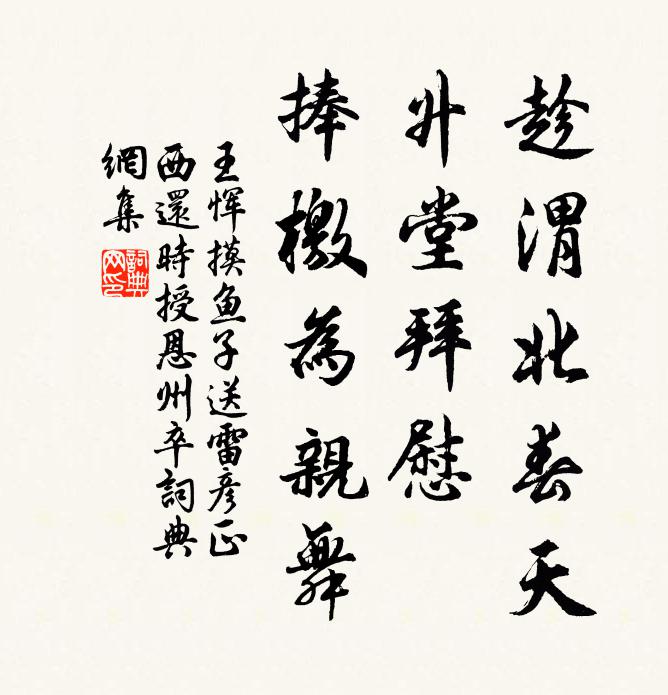 趁渭北春天
升堂拜慰
捧檄為親舞
王惲摸魚子送雷彥正
西還時授恩州卒詞典
網集
詞典
网印